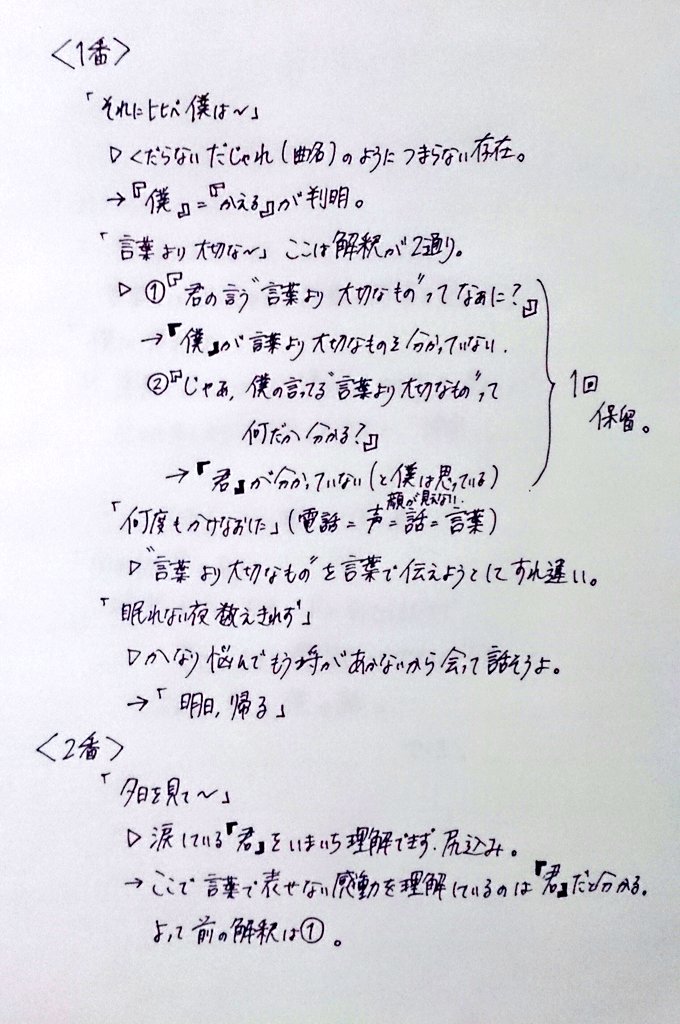 〈1番〉
「それに比べ僕は～」
▷くだらないだじゃれ(曲名)のようにつまらない存在。
→『僕』=『かえる』が判明。
「言葉より大切な～」ここは解釈が2通り。
▷①『君の言う"言葉より大切なもの"ってなぁに?』
→『僕』が言葉より大切なものを分かっていない.
②『じゃあ,僕の言ってる"言葉より大切なもの"って
何だか分かる?』
→『君』が分かっていない(と僕は思っている)
1回
保留。
顔が見えない.
「何度もかけなおした」(電話=声=話=言葉)
▷"言葉より大切なもの"を言葉で伝えようとしてすれ違い。
「眠れない夜数えきれず」
▷かなり悩んでもう埒があかないから会って話そうよ。
→「明日,帰る」
〈2番〉
「夕日を見て～」
▷涙している『君』をいまいち理解できず.尻込み。
→ここで言葉で表せない感動を理解しているのは『君』だと分かる.
よって前の解釈は①。